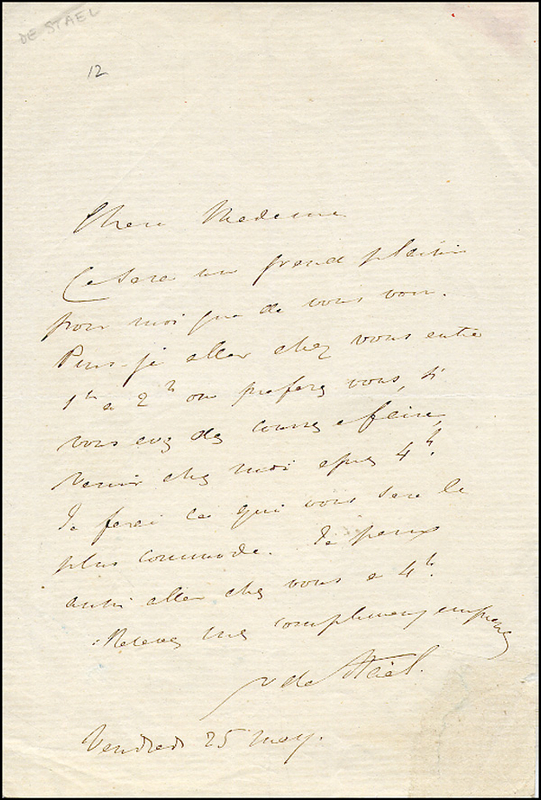 DE STAEL
12
Chere Madame
Ce sera un grand plaisir
pour moi que de vous voir.
Puis-je aller chez vous entre
1h a 2h ou preferez vous, si
vous avez des courses a faire,
venir chez moi apres 4h.
Je ferai ce qui vous sera le
plus commode. Je peux
aussi aller chez vous a 4h.
Recevez mes complimens empressés
de Staël.
Vendredi 25 may.